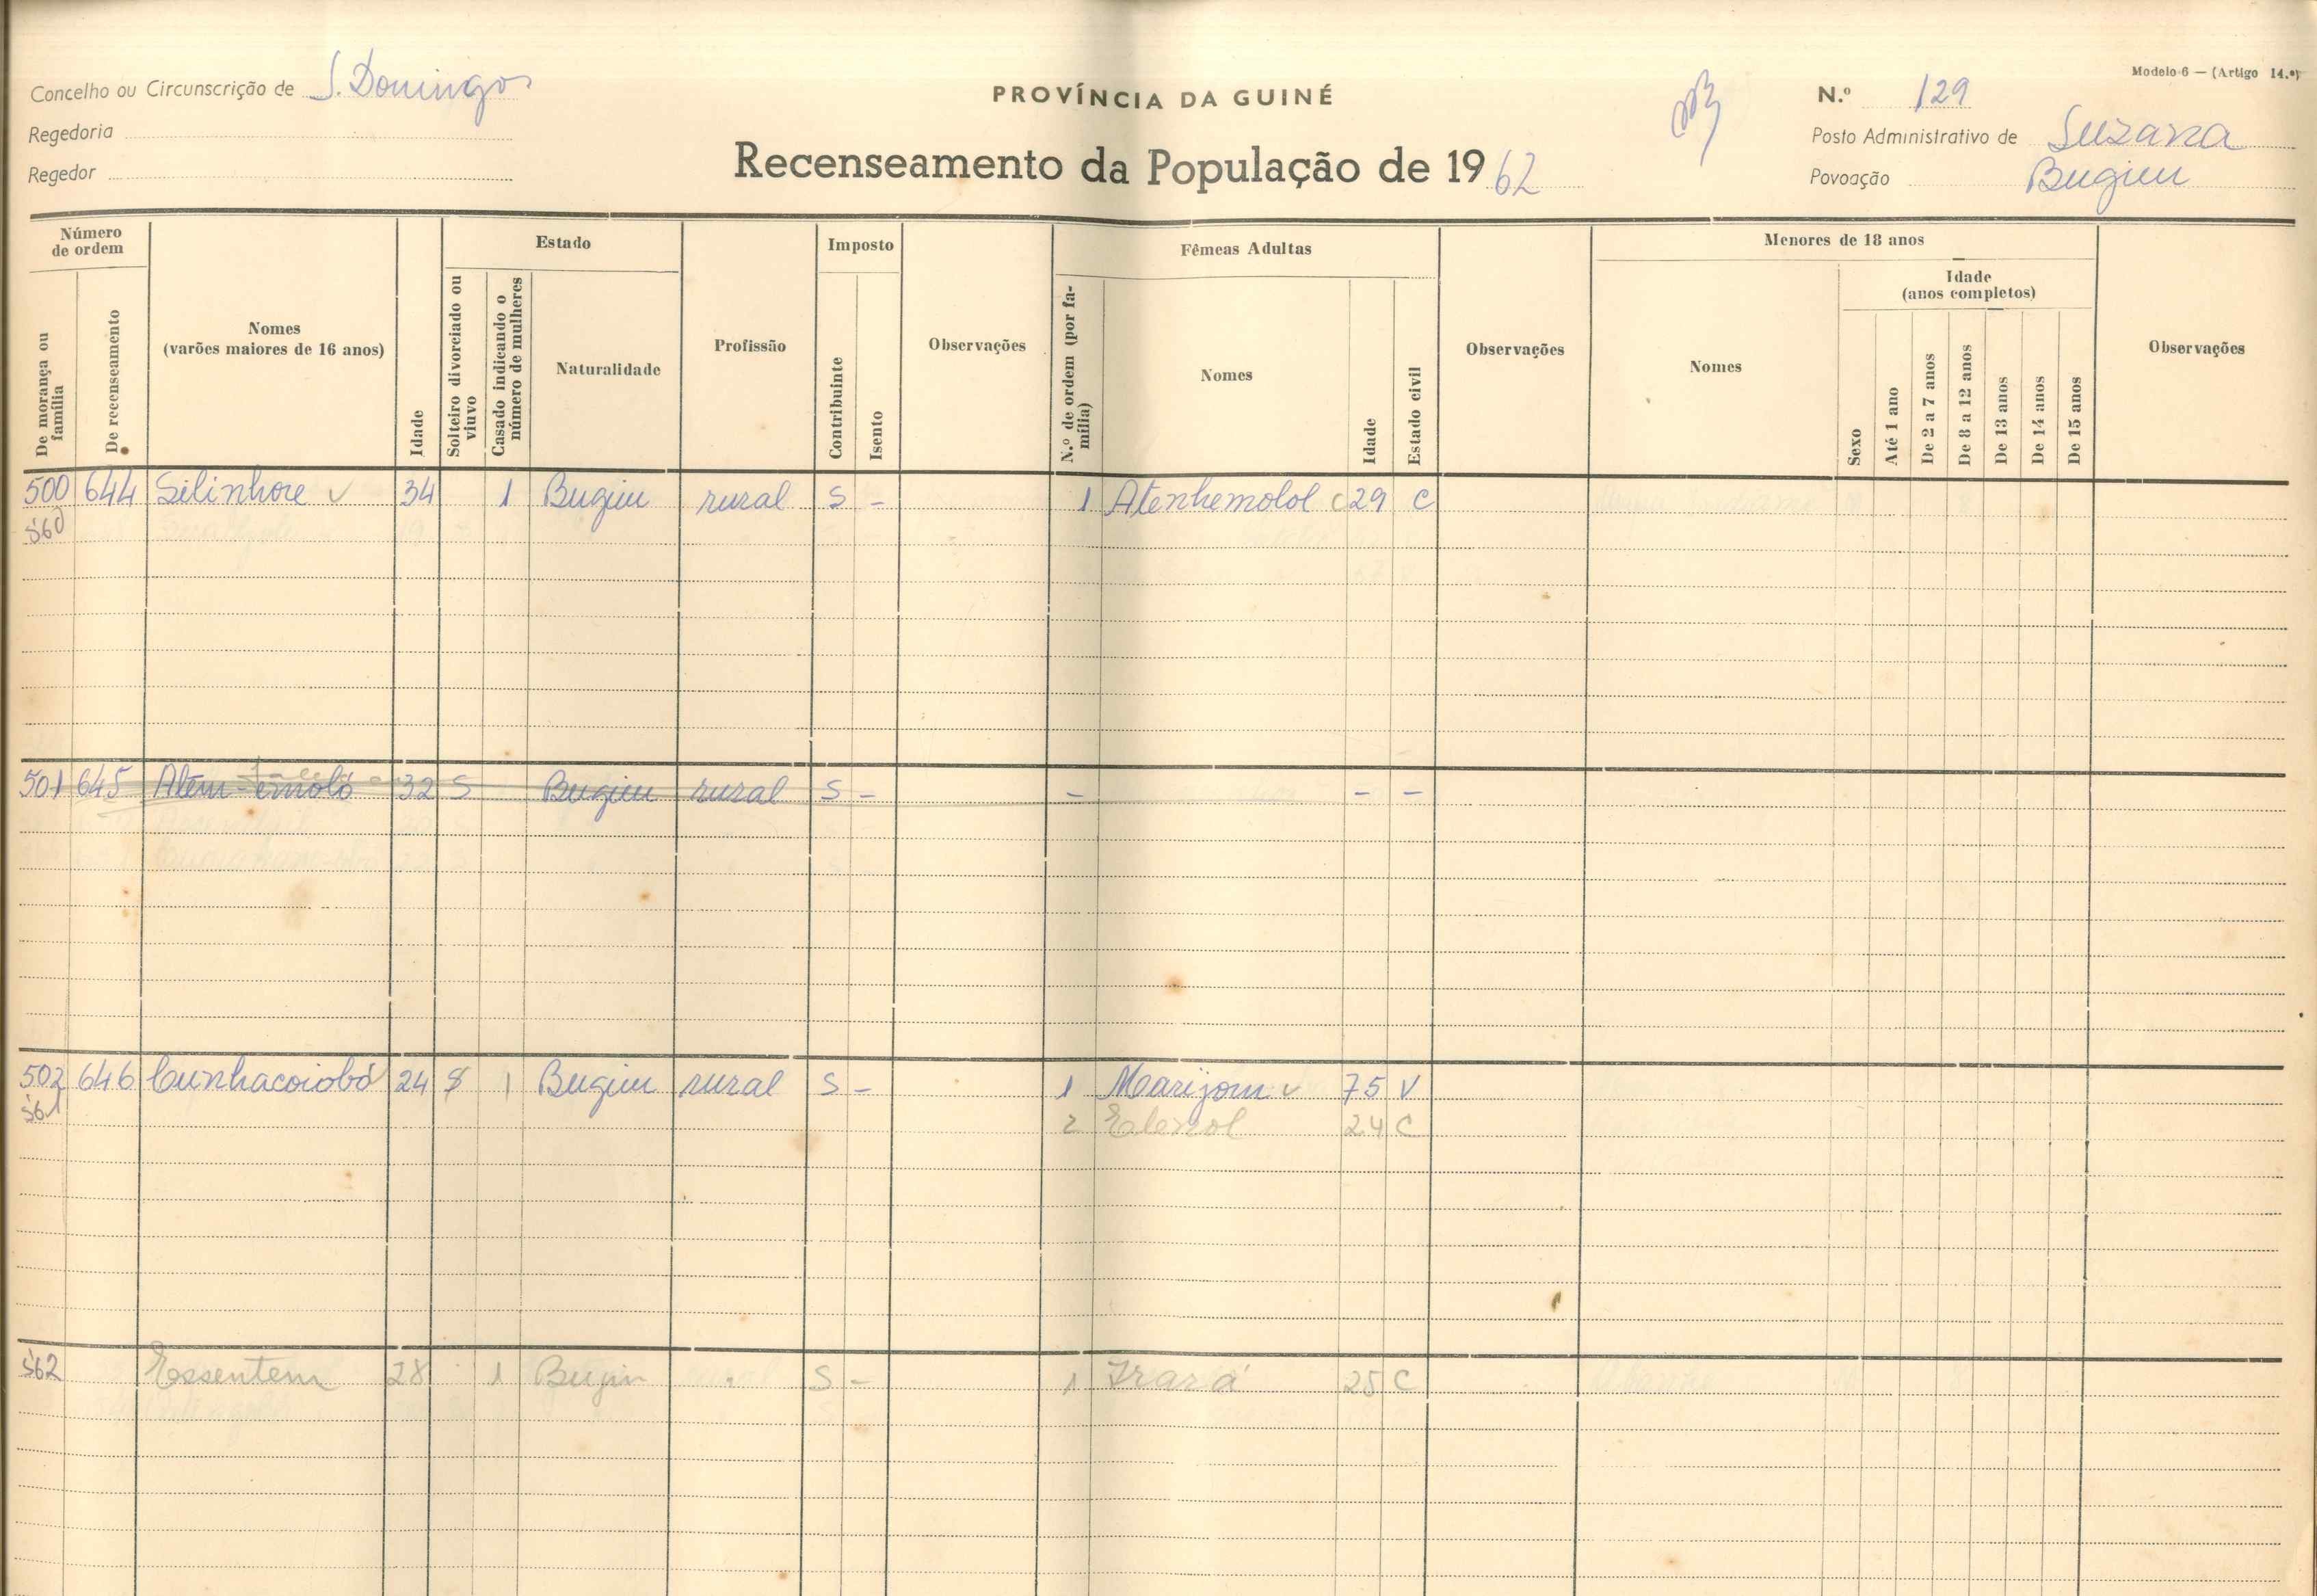 Modelo 6 — (Artigo 14.º)
Concelho ou Circunscrição de S. Domingos
PROVÍNCIA DA GUINÉ
N.º 129
Regedoria
Posto Administrativo de Suzana
Regedor
Recenseamento da População de 1962
Povoação Bugim
Número de ordem
Estado
Imposto
Fêmeas Adultas
Menores de 18 anos
Idade (anos completos)
De morança ou família
De recenseamento
Nomes (varões maiores de 16 anos)
Idade
Solteiro divorciado ou viuvo
Casado indicando o número de mulheres
Naturalidade
Profissão
Contribuinte
Isento
Observações
N.º de ordem (por família)
Nomes
Idade
Estado civil
Observações
Nomes
Sexo
Até 1 ano
De 2 a 7 anos
De 8 a 12 anos
De 13 anos
De 14 anos
De 15 anos
Observações
500 644 Silinhore 34 1 Bugim rural S - 1 Atenhemolol 29 C
560
501 645 Atem-emoló 32 S Bugim rural S - - - -
502 646 Cunhacoiobó 24 S 1 Bugim rural S - 1 Marijom 75 V
561 2 Elenol 24 C
562 Essentem 28 1 Bugim S - 1 Irará 25 C